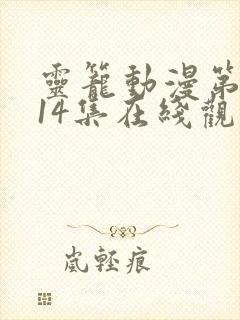 靈籠動漫第
14集在綫觀
嵐輕痕